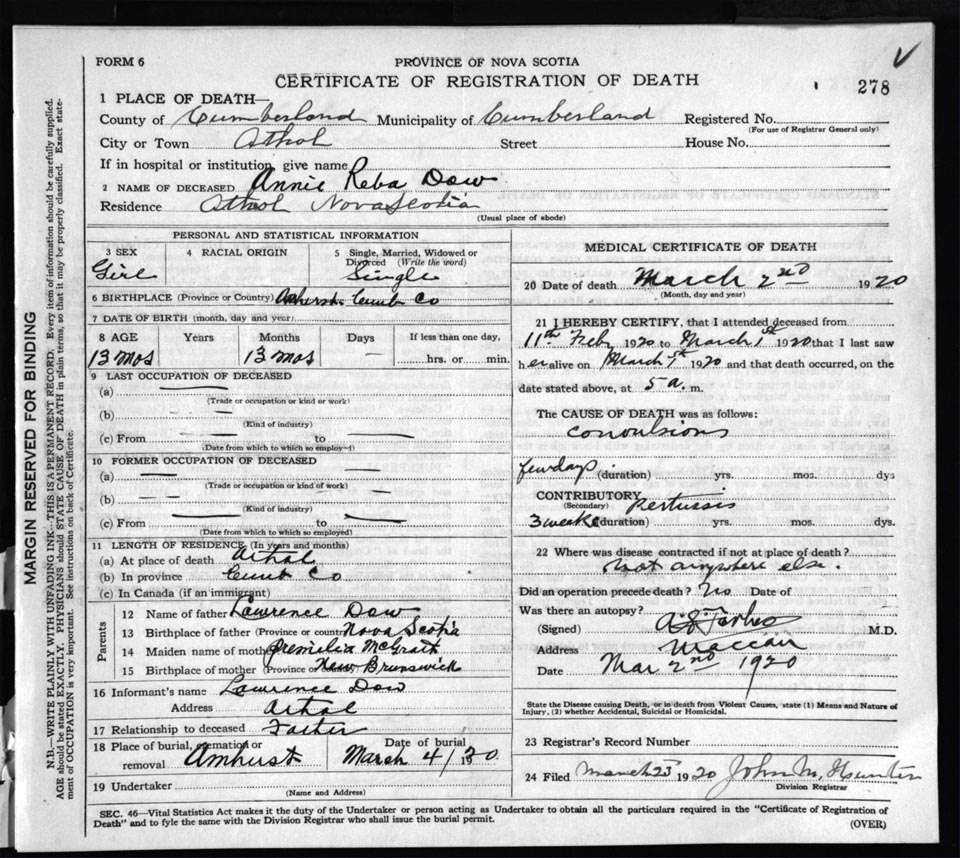 FORM 6
PROVINCE OF NOVA SCOTIA
CERTIFICATE OF REGISTRATION OF DEATH
278
1 PLACE OF DEATH—
County of Cumberland Municipality of Cumberland Registered No.
(For use of Registrar General only)
City or Town Athol Street House No.
If in hospital or institution, give name
2 NAME OF DECEASED Annie Reba Dow
Residence Athol Nova Scotia
(Usual place of abode)
PERSONAL AND STATISTICAL INFORMATION
3 SEX 4 RACIAL ORIGIN 5 Single, Married, Widowed or Divorced (Write the word)
Girl Single
6 BIRTHPLACE (Province or Country) Amherst Cumb Co
7 DATE OF BIRTH (month, day and year)
8 AGE Years Months Days If less than one day,
13 mos 13 mos — hrs. or min.
9 LAST OCCUPATION OF DECEASED
(a)
(Trade or occupation or kind or work)
(b)
(Kind of industry)
(c) From to
(Date from which to which so employed)
10 FORMER OCCUPATION OF DECEASED
(a)
(Trade or occupation or kind of work)
(b)
(Kind of industry)
(c) From to
(Date from which to which so employed)
11 LENGTH OF RESIDENCE (In years and months)
(a) At place of death Athol
(b) In province Cumb Co
(c) In Canada (if an immigrant)
Parents
12 Name of father Lawrence Dow
13 Birthplace of father (Province or country) Nova Scotia
14 Maiden name of mother McGrath
15 Birthplace of mother (Province or New Brunswick
16 Informant's name Lawrence Dow
Address Athol
17 Relationship to deceased Father
18 Place of burial, cremation or removal Amhurst Date of burial March 4/1920
19 Undertaker
(Name and Address)
MEDICAL CERTIFICATE OF DEATH
20 Date of death March 2nd 1920
(Month, day and year)
21 I HEREBY CERTIFY, that I attended deceased from
11th Feby 1920 to March 1st 1920 that I last saw
her alive on March 1st 1920 and that death occurred, on the
date stated above, at 5 a. m.
The CAUSE OF DEATH was as follows:
convulsions
few days (duration) yrs. mos. dys
CONTRIBUTORY Pertussis
(Secondary)
3 weeks (duration) yrs. mos. dys.
22 Where was disease contracted if not at place of death?
Not anywhere else.
Did an operation precede death? No Date of
Was there an autopsy?
(Signed) Forbes M.D.
Address Maccan
Date Mar 2nd 1920
State the Disease causing Death, or in death from Violent Causes, state (1) Means and Nature of
Injury, (2) whether Accidental, Suicidal or Homicidal.
23 Registrar's Record Number
24 Filed March 23 1920 John M. Hunter
Division Registrar
SEC. 46—Vital Statistics Act makes it the duty of the Undertaker or person acting as Undertaker to obtain all the particulars required in the "Certificate of Registration of
Death" and to fyle the same with the Division Registrar who shall issue the burial permit.
(OVER)
MARGIN RESERVED FOR BINDING
N.B.—WRITE PLAINLY WITH UNFADING INK—THIS IS A PERMANENT RECORD. Every item of information should be carefully supplied.
AGE should be stated EXACTLY. PHYSICIANS should STATE CAUSE OF DEATH in plain terms, so that it may be properly classified. Exact state-
ment of OCCUPATION is very important. See instructions on back of Certificate.